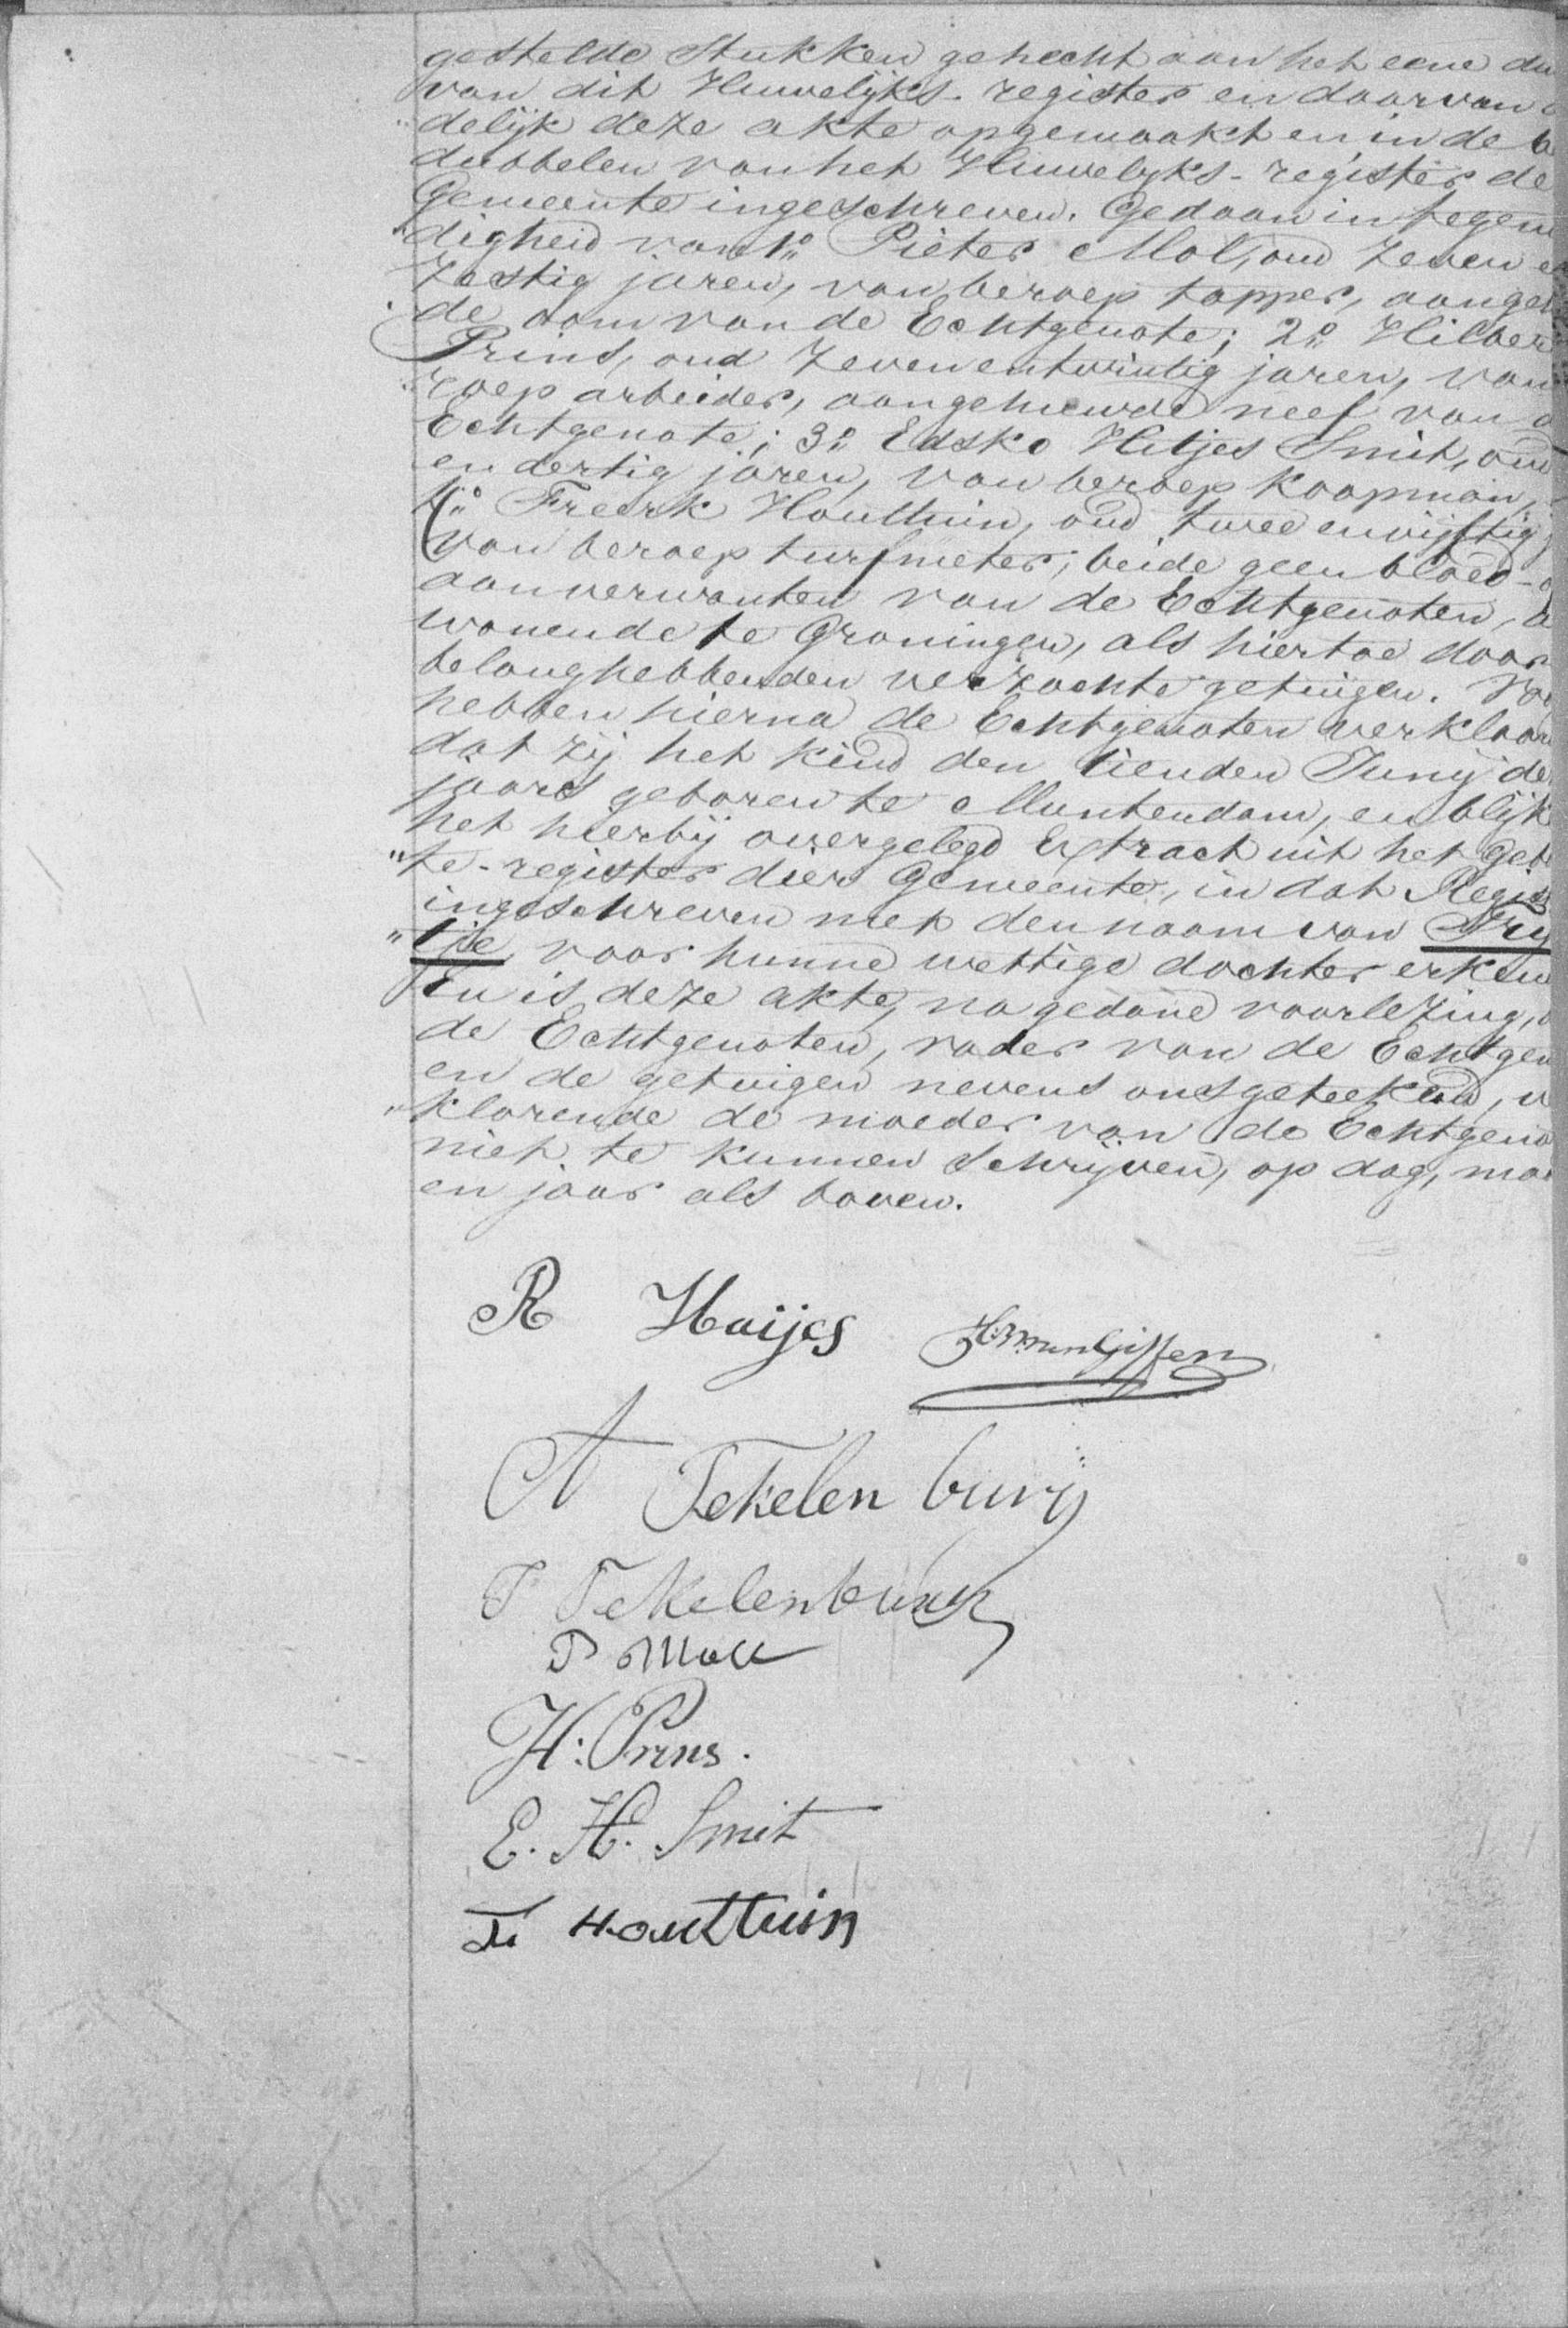 gestelde stukken gehecht aan het eene du
van dit Huwelijks-register en daarvan
delijk deze akte opgemaakt en in de b
dubbelen van het Huwelyks-register de
Gemeente ingeschreven. Gedaan in tegenw
digheid van 1o Pieter Mol, oud zeven e
zestig jaren, van beroep tapper, aangeh
de oom van de Echtgenote; 2o Hilber
Prins, oud zevenentwintig jaren, van
roep arbeider, aangehuwde neef van d
Echtgenote; 3o Edsko Hitjes Smit, oud
en dertig jaren, van beroep koopman,
4o Freerk Houttuin, oud twee envijftig
van beroep turfmeter; beide geen bloed-
aanverwanten van de Echtgenoten,
wonende te Groningen, als hiertoe door
belanghebbenden verzochte getuigen.
hebben hierna de Echtgenoten verklaar
dat zij het kind den tienden Junij de
jaars geboren te Muntendam, en blijk
het hierbij overgelegd Extract uit het Gebo
"te-register dier Gemeente, in dat Regis
ingeschreven met den naam van
"tje, voor hunne wettige dochter erken
En is deze akte, na gedane voorlezing,
de Echtgenoten, vader van de Echtgen
en de getuigen nevens ons geteekend, v
"klarende de moeder van de Echtgeno
niet te kunnen schrijven, op dag, maa
en jaar als boven.
R Haijes
A Tekelenburg
T Tekelenburg
P Moll
H: Prins.
E. H. Smit
F Houttuin